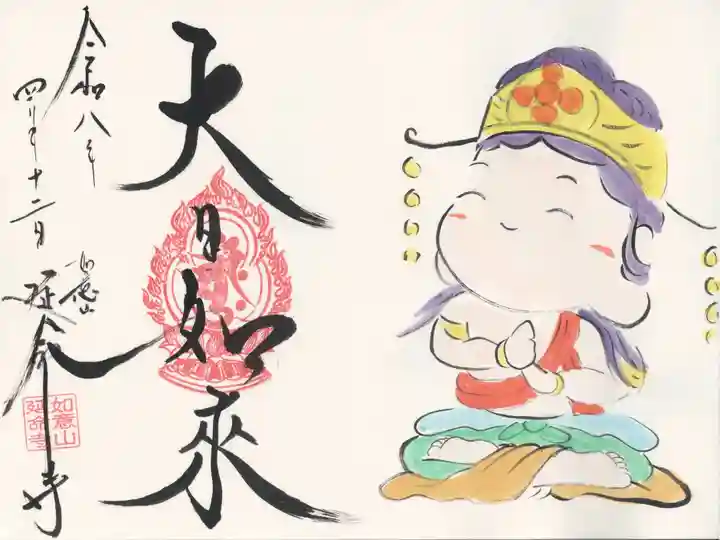 大日如來
令和八年
四月十二日
如意山
延命寺
如意山
延命寺